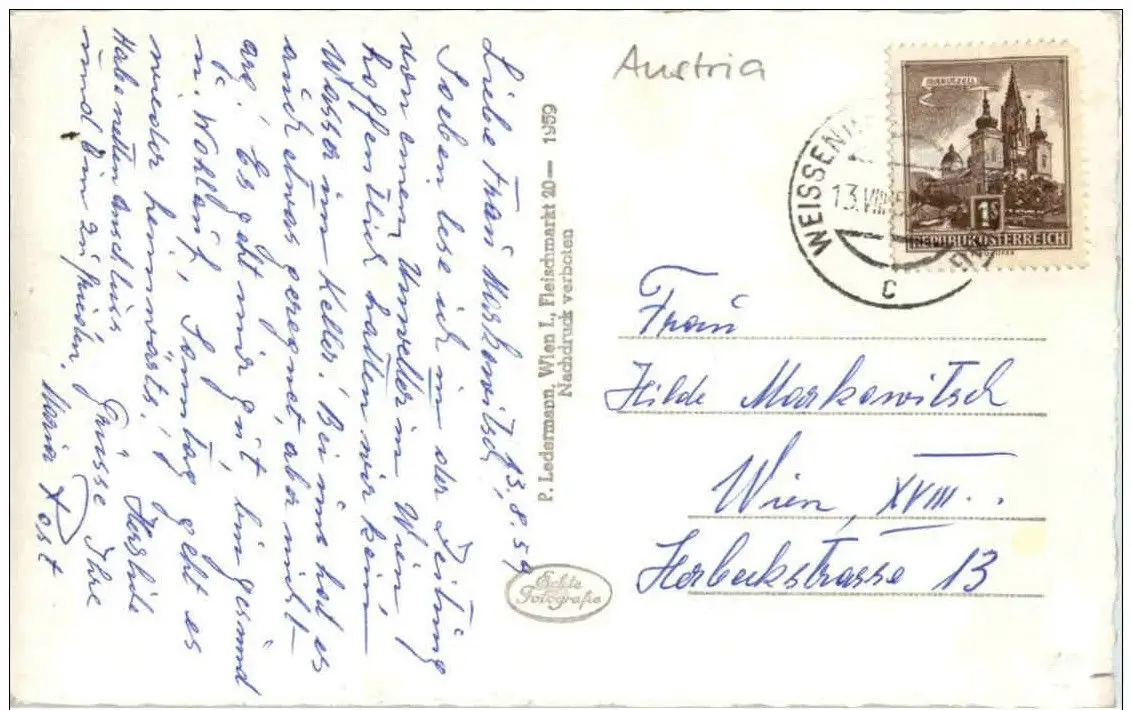 Liebe Frau Markowitsch, 13.8.59
Soeben lese ich in der Zeitung
von einem Unwetter in Wien,
hoffentlich hatten wir kein
Wasser im Keller! Bei uns hat es
auch etwas geregnet, aber nicht
arg. Es geht mir gut, bin gesund
u. Wohlauf, Sonntag geht es
wieder heimwärts!
Herzliche
Grüsse Ihre
und bin zufrieden.
Maria Post
P. Ledermann, Wien I., Fleischmarkt 20— 1959
Nachdruck verboten
Echte
Fotografie
Austria
MARIAZELL
1S
REPUBLIK ÖSTERREICH
WEISSEN
13.VIII.5
C
Frau
Hilde Markowitsch
Wien, XVIII..
Herbeckstrasse 13